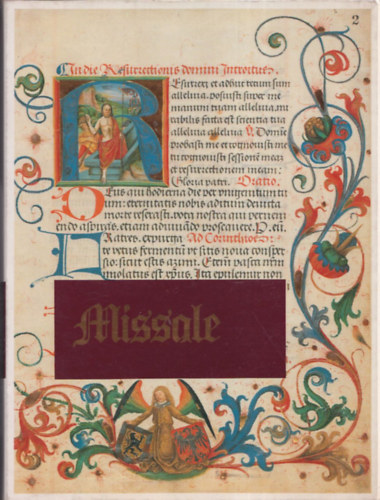 2
In die Resurrectionis domini Introitus.
Resurrexi et adhuc tecum sum
alleluia. posuisti super me
manum tuam alleluia. mi
rabilis facta est scientia tua
alleluia alleluia V. Domine
probasti me et cognouisti me
tu cognouisti sessionem meam
et resurrectionem meam.
Gloria patri. Oratio.
Deus qui hodierna die per vnigenitum
tuum: eternitatis nobis aditum deuicta
morte reserasti. vota nostra que preueni
endo aspiras. etiam adiuuando prosequere. P. eu
Fratres. expurga Ad Corinthios
te vetus fermentum vt sitis noua consper
sio: sicut estis azimi. Etenim pascha nostrum
immolatus est xpus. Itaq epulemur non
Missale